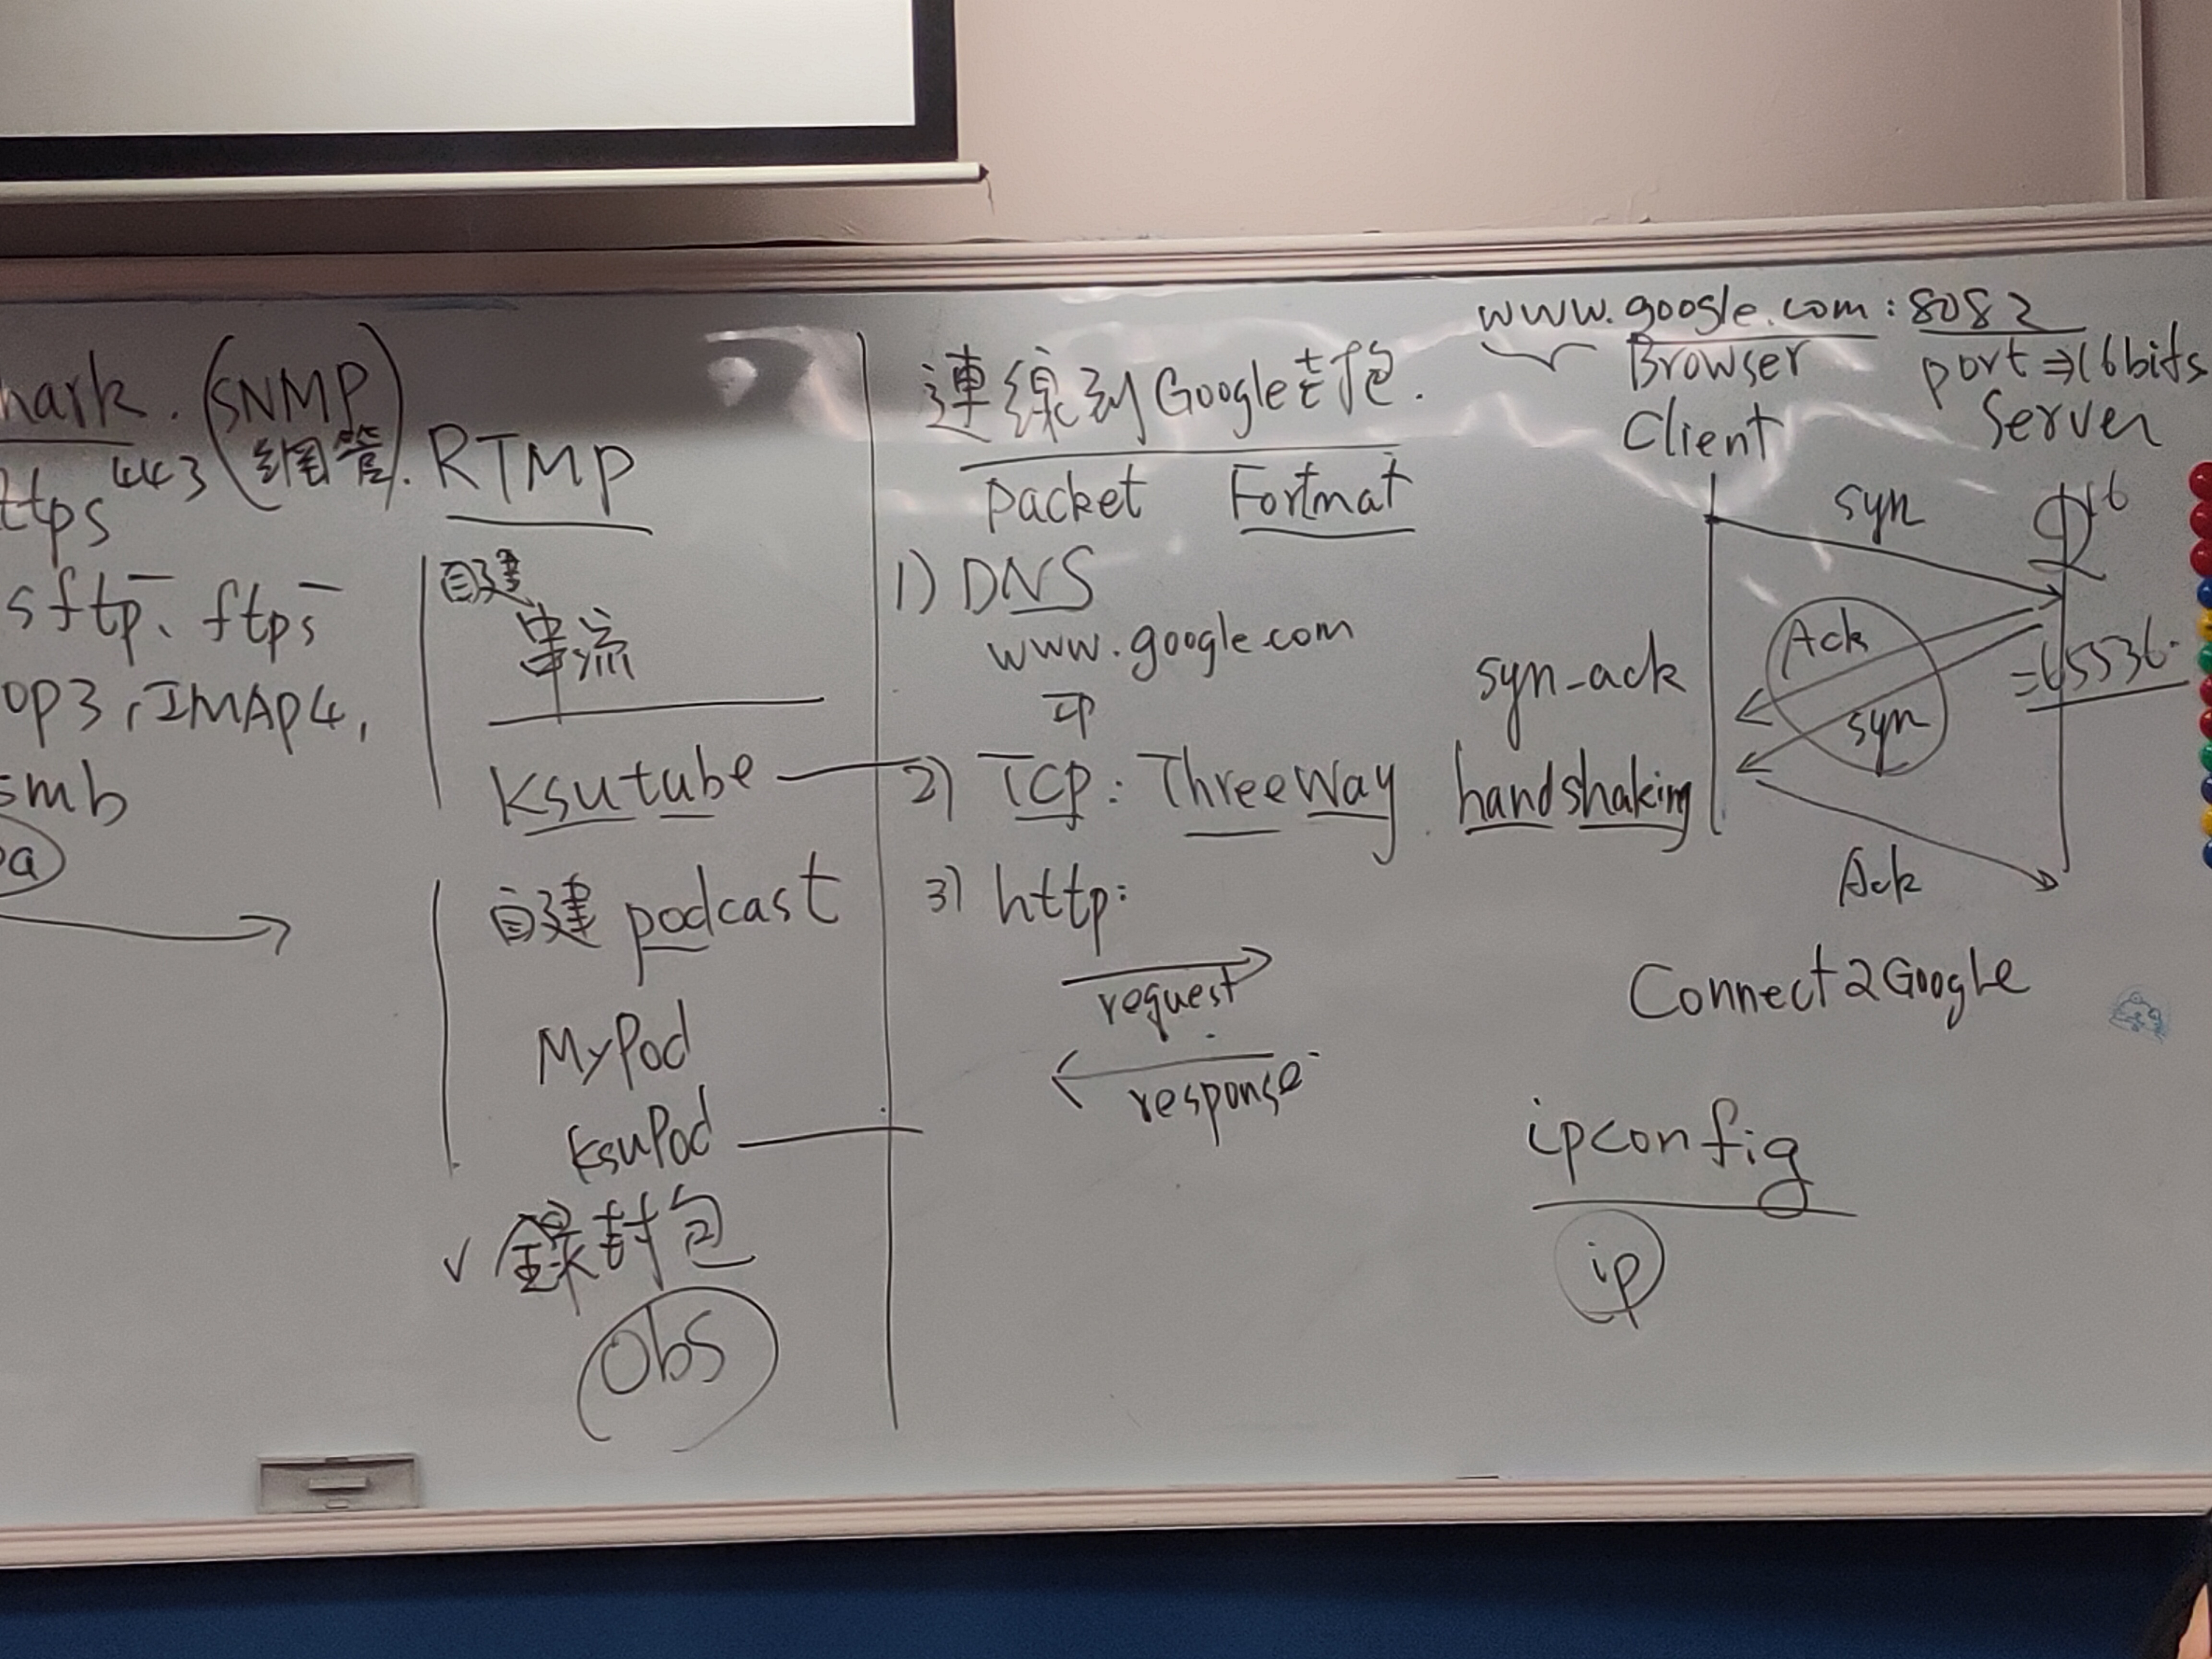 hark. (SNMP
網管).
ttps 443
sftp、ftps
op3, IMAP4,
smb
a
RTMP
自建
串流
Ksutube
自建 podcast
MyPod
KsuPod
✓ 錄封包
Obs
連線到Google去抱.
Packet Fortmat
1) DNS
www.google.com
IP
2) TCP: Three Way handshaking
3) http:
request
response
www.google.com:8082
Browser
port ⇒ 16bits
Client
Server
syn
16
Ack
=65536.
syn-ack
syn
Ack
Connect2Google
ipconfig
ip